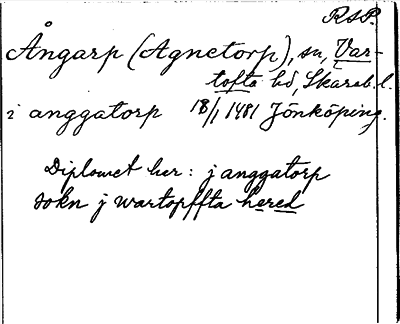 RSP.
Ångarp (Agnetorp), sn, Var-
tofta hd, Skarab. l.
i anggatorp 18/1 1481 Jönköping.
Diplomet har: j anggatorp
sokn j wartopffta hered